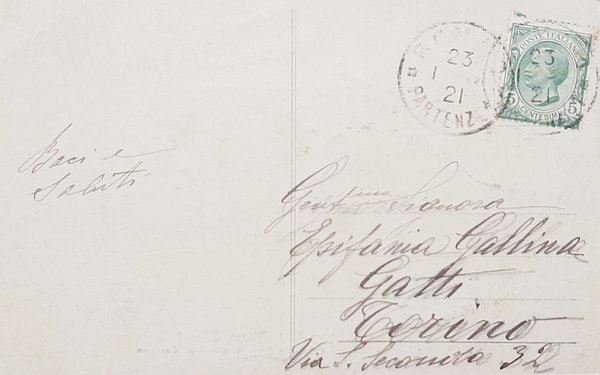 Baci e
Saluti
ROMA
23
1
21
PARTENZA
POSTE ITALIANE
23
21
5 CENTESIMI 5
Gent.ma Signora
Epifania Gallina
Gatti
Torino
Via S. Secondo 32